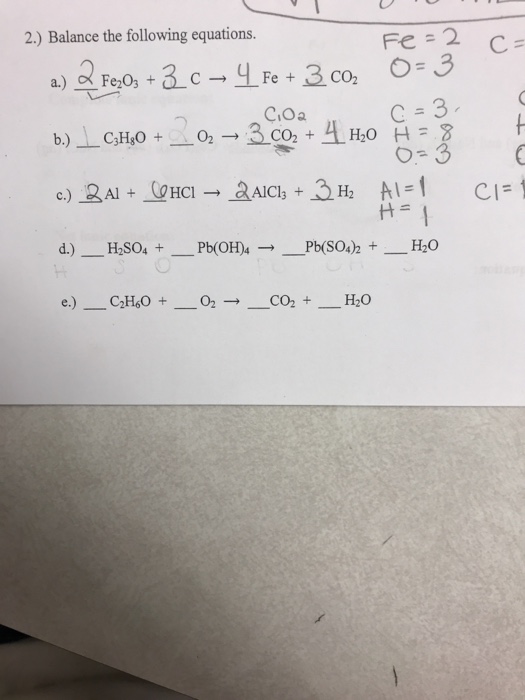 2.) Balance the following equations.
Fe = 2 C =
a.) 2 Fe₂O₃ + 3 C → 4 Fe + 3 CO₂ O = 3
C₁O₂ C = 3
b.) 1 C₃H₈O + __ O₂ → 3 CO₂ + 4 H₂O H = 8
O = 3
c.) 2 Al + 6 HCl → 2 AlCl₃ + 3 H₂ Al = 1 Cl = 1
H = 1
d.) __ H₂SO₄ + __ Pb(OH)₄ → __Pb(SO₄)₂ + __ H₂O
e.) __ C₂H₆O + __ O₂ → __CO₂ + __ H₂O